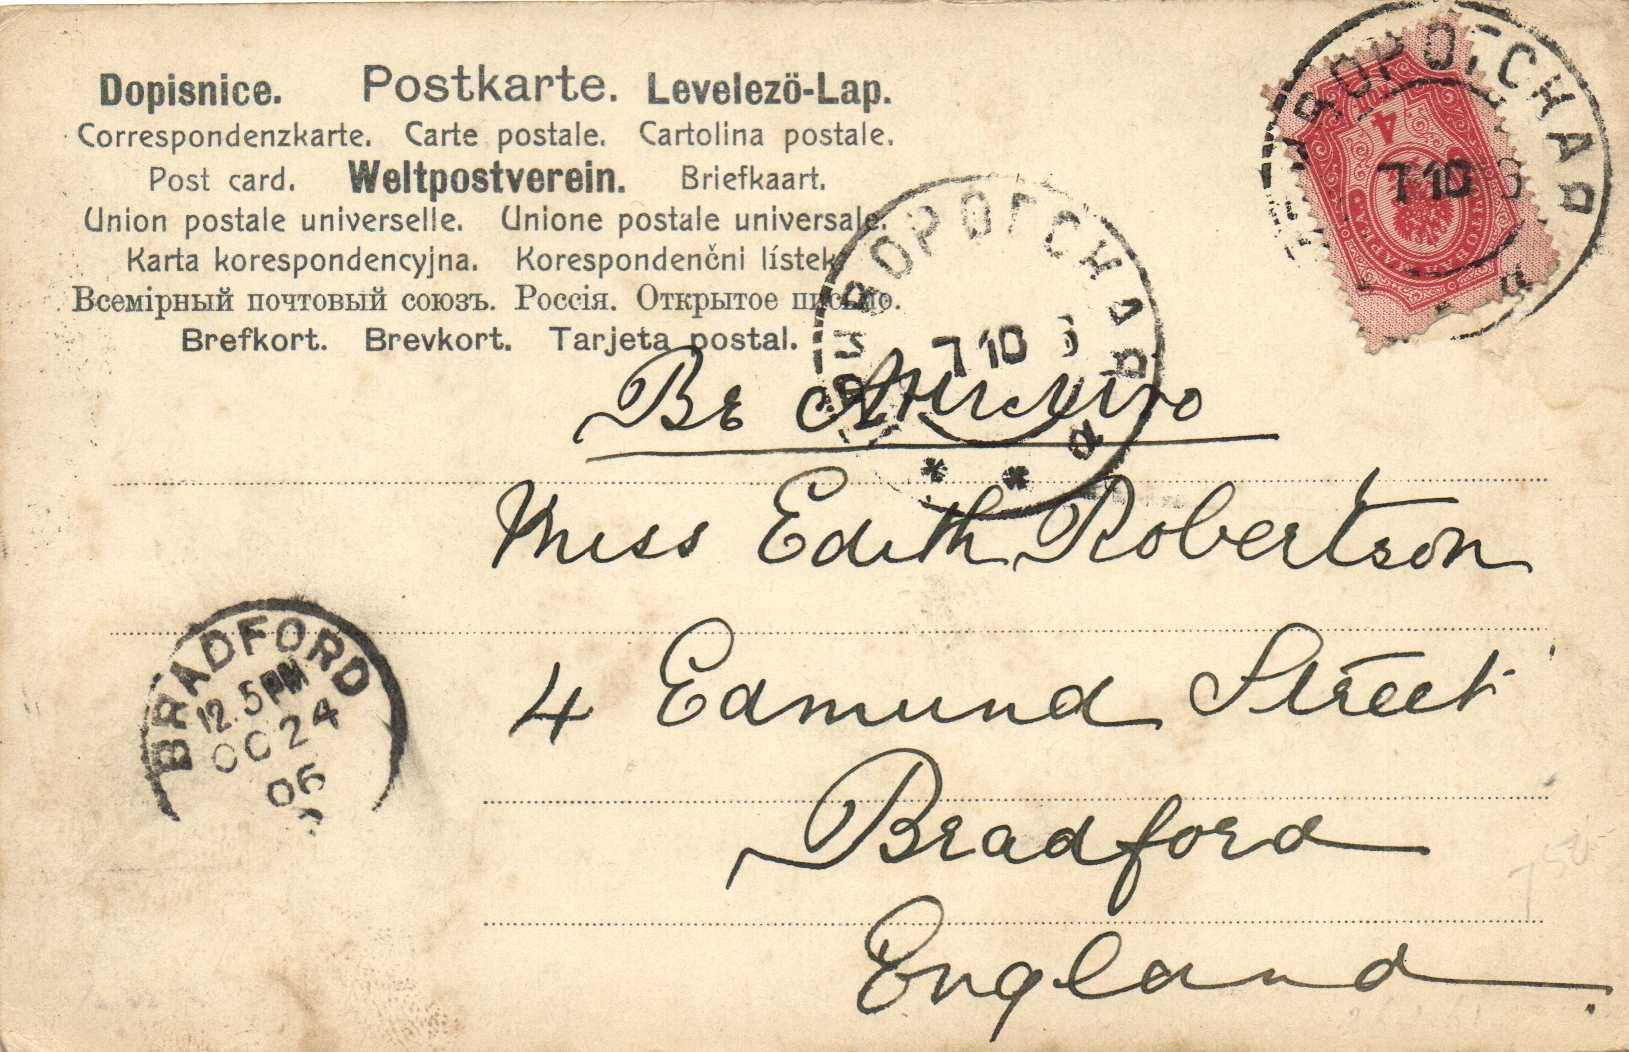 Dopisnice. Postkarte. Levelezö-Lap.
Correspondenzkarte. Carte postale. Cartolina postale.
Post card. Weltpostverein. Briefkaart.
Union postale universelle. Unione postale universale.
Karta korespondencyjna. Korespondenčni lístek
Всемірный почтовый союзъ. Россія. Открытое письмо.
Brefkort. Brevkort. Tarjeta postal.
4
7 10 6
7 10 6
а
Въ Англію
Miss Edith Robertson
4 Edmund Street
Bradford
England
BRADFORD
12.5PM
OC 24
06
7 50